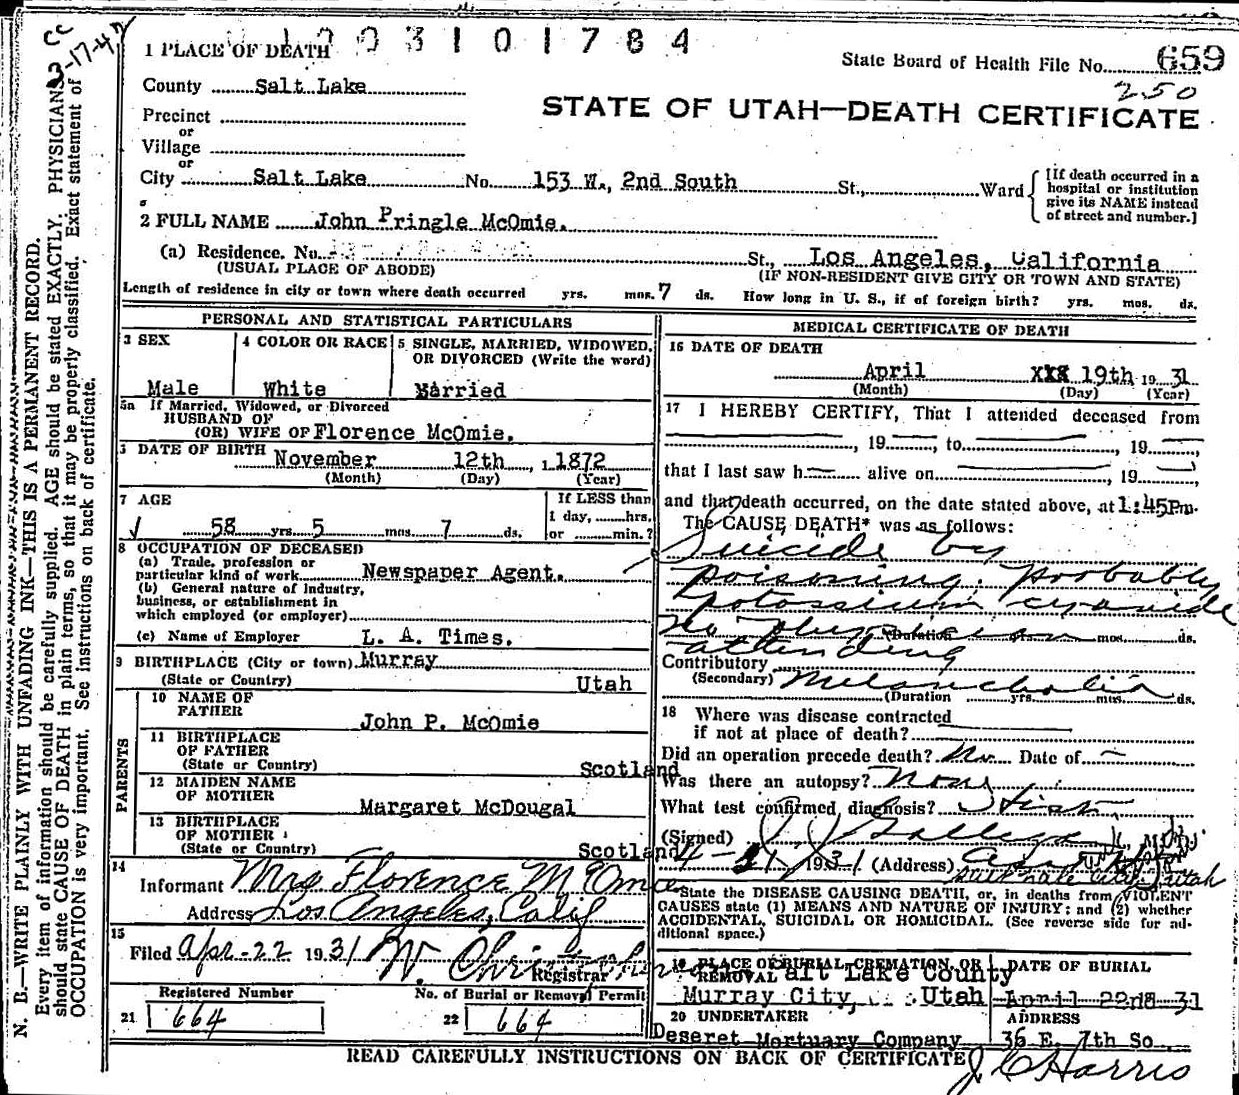 CC
3-17-47
1 PLACE OF DEATH
1 0 0 3 1 0 1 7 8 4
State Board of Health File No. 659
250
County Salt Lake
STATE OF UTAH—DEATH CERTIFICATE
Precinct
or
Village
or
City Salt Lake No. 153 W., 2nd South St., Ward
[If death occurred in a
hospital or institution
give its NAME instead
of street and number.]
2 FULL NAME John Pringle McOmie.
(a) Residence. No. St., Los Angeles, California
(USUAL PLACE OF ABODE) (IF NON-RESIDENT GIVE CITY OR TOWN AND STATE)
Length of residence in city or town where death occurred yrs. mos. 7 ds. How long in U. S., if of foreign birth? yrs. mos. ds.
PERSONAL AND STATISTICAL PARTICULARS
3 SEX
Male
4 COLOR OR RACE
White
5 SINGLE, MARRIED, WIDOWED,
OR DIVORCED (Write the word)
Married
5a If Married, Widowed, or Divorced
HUSBAND OF
(OR) WIFE OF Florence McOmie.
DATE OF BIRTH November 12th, 1872
(Month) (Day) (Year)
7 AGE
58 yrs. 5 mos. 7 ds.
If LESS than
1 day, hrs.
or min.?
8 OCCUPATION OF DECEASED
(a) Trade, profession or
particular kind of work Newspaper Agent.
(b) General nature of industry,
business, or establishment in
which employed (or employer)
(c) Name of Employer L. A. Times.
9 BIRTHPLACE (City or town) Murray
(State or Country) Utah
PARENTS
10 NAME OF
FATHER John P. McOmie
11 BIRTHPLACE
OF FATHER
(State or Country) Scotland
12 MAIDEN NAME
OF MOTHER Margaret McDougal
13 BIRTHPLACE
OF MOTHER
(State or Country) Scotland
14
Informant Mrs Florence McOmie
Address Los Angeles, Calif
15
Filed Apr-22 1931 W. Registrar
Registered Number
21 664
No. of Burial or Removal Permit
22 664
MEDICAL CERTIFICATE OF DEATH
16 DATE OF DEATH
April 19th 1931
(Month) (Day) (Year)
17 I HEREBY CERTIFY, That I attended deceased from
, 19 , to , 19 ,
that I last saw h alive on , 19
and that death occurred, on the date stated above, at 1:45Pm.
The CAUSE DEATH* was as follows:
Suicide by
poisoning. probably
potossium cyanide
No Physician
(Duration mos. ds.
attending
Contributory
(Secondary) Melancholia
(Duration yrs. mos. ds.
18 Where was disease contracted
if not at place of death?
Did an operation precede death? No. Date of
Was there an autopsy? None
What test confirmed diagnosis?
(Signed) M.D.
4-21 1931 (Address)
Salt Lake City, Utah
*State the DISEASE CAUSING DEATH, or, in deaths from VIOLENT
CAUSES state (1) MEANS AND NATURE OF INJURY; and (2) whether
ACCIDENTAL, SUICIDAL OR HOMICIDAL. (See reverse side for ad-
ditional space.)
19 PLACE OF BURIAL, CREMATION, OR
REMOVAL Salt Lake County
Murray City, Utah
DATE OF BURIAL
April 22nd 19 31
20 UNDERTAKER
Deseret Mortuary Company
ADDRESS
36 E. 7th So.
READ CAREFULLY INSTRUCTIONS ON BACK OF CERTIFICATE
J C Harris
N. B.—WRITE PLAINLY WITH UNFADING INK—THIS IS A PERMANENT RECORD.
Every item of information should be carefully supplied. AGE should be stated EXACTLY. PHYSICIANS
should state CAUSE OF DEATH in plain terms, so that it may be properly classified. Exact statement of
OCCUPATION is very important. See instructions on back of certificate.